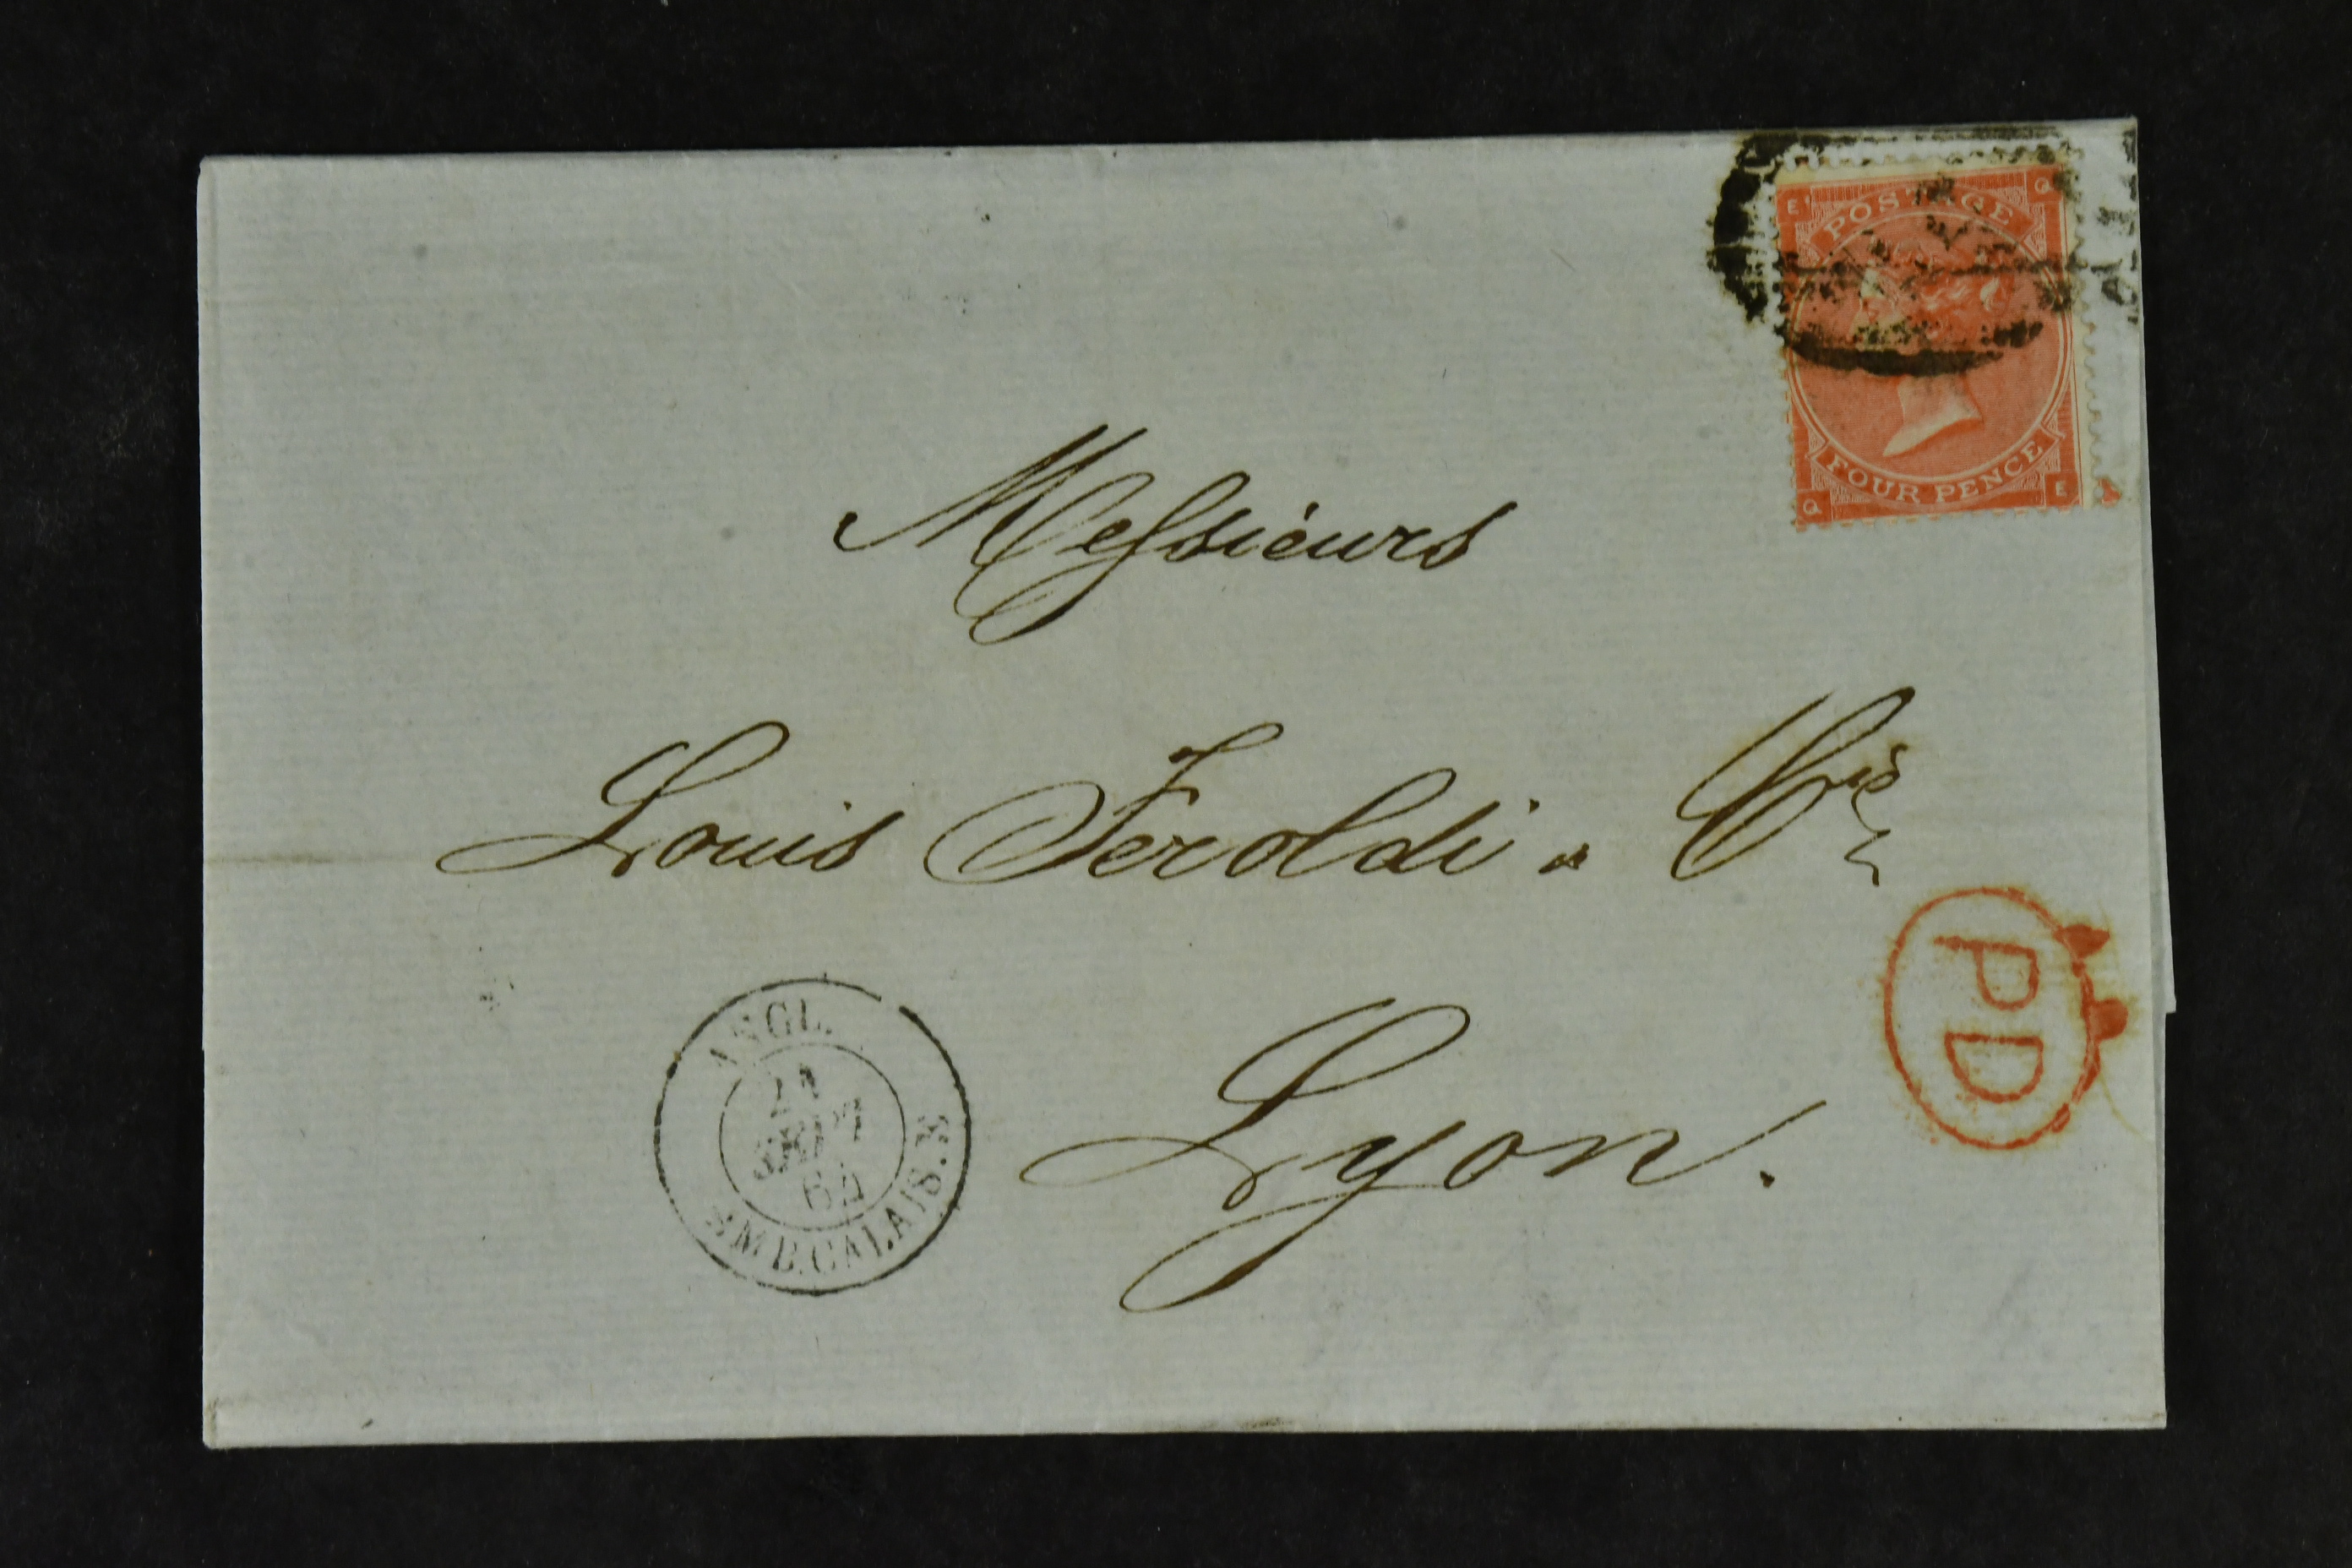 E Q
POSTAGE
FOUR PENCE
Q E
Messieurs
Louis Feroldi & Cie
PD
ANGL.
21
SEPT
64
AMB. CALAIS. E
Lyon.